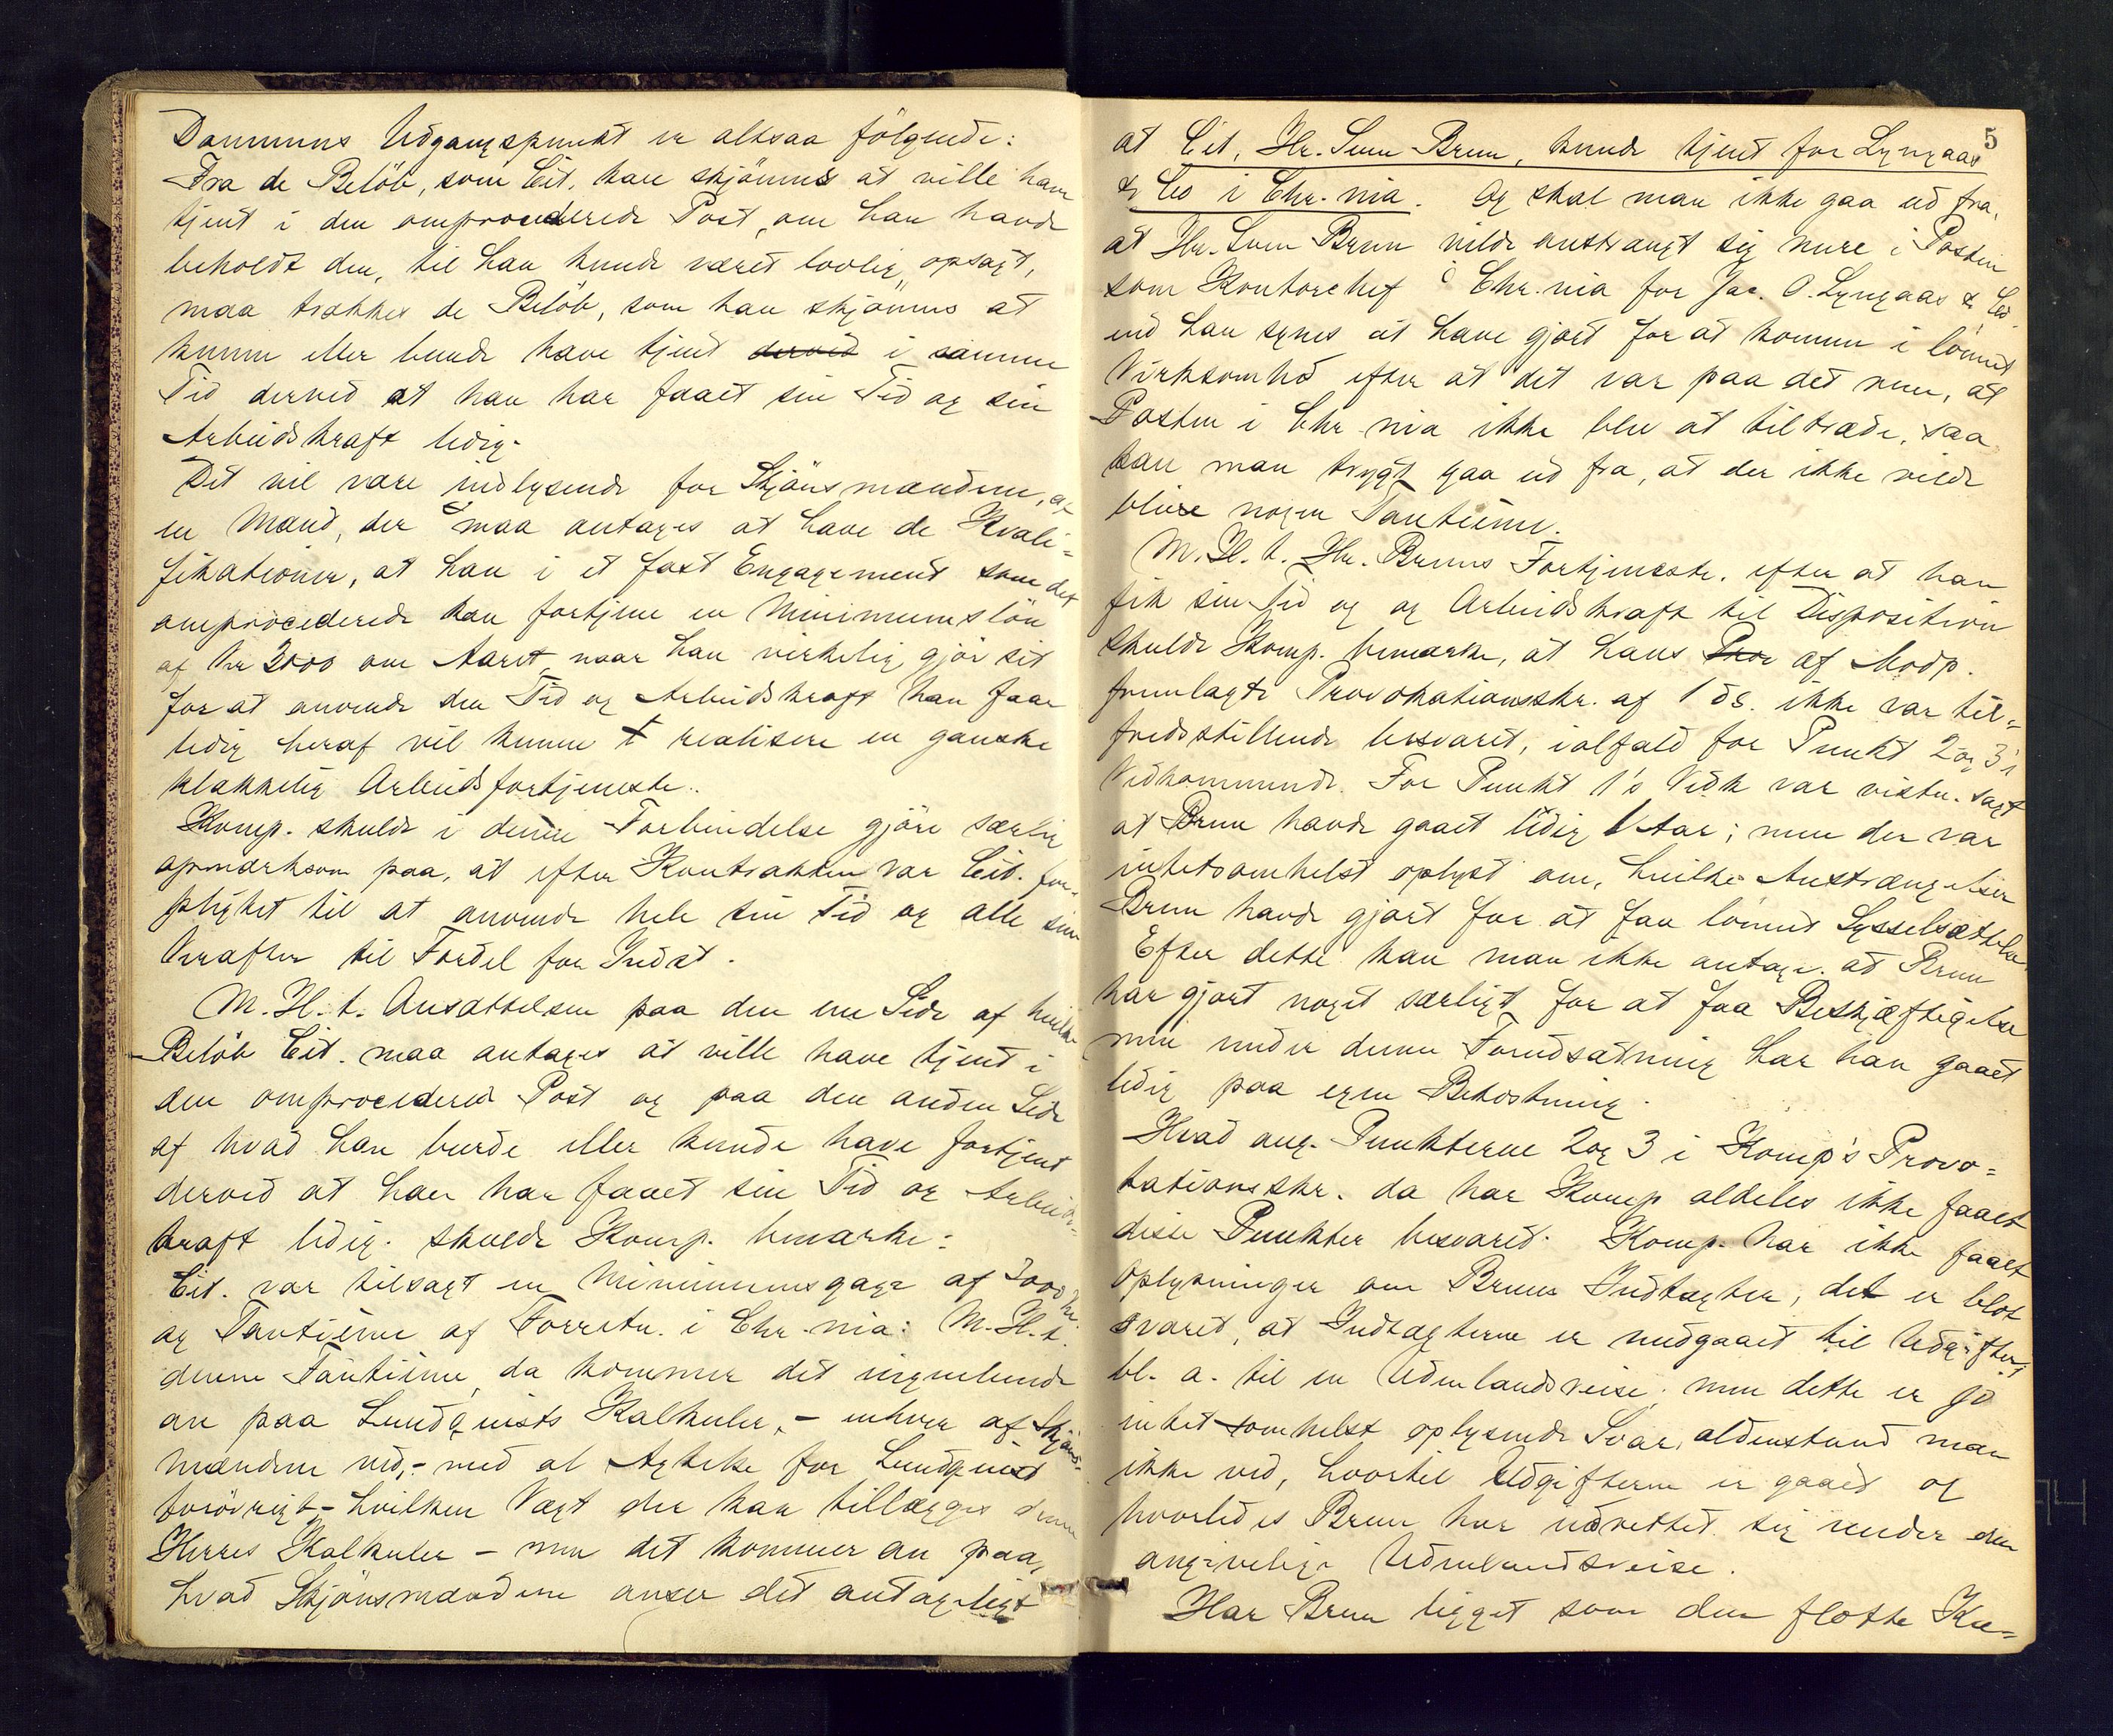 Dommens Udgangspunkt er altsaa følgende:
Fra de Beløb, som Cit. kan skjønnes at ville have
tjent i den omprocederede Post, om han havde
beholdt den, til han kunde været lovlig opsagt,
maa trækkes de Beløb, som han skjønnes at
kunne eller burde have tjent derved i samme
Tid derved at han har faaet sin Tid og sin
Arbeidskraft ledig.
Det vil være indlysende for Skjønsmændene, at
en Mand, der maa antages at have de Kvali-
fikationer, at han i et fast Engagement som det
omprocederede kan fortjene en Minimumsløn
af Kr 3000 om Aaret, naar han virkelig gjør sit
for at anvende den Tid og Arbeidskraft han faar
ledig heraf vil kunne realisere en ganske
klækkelig Arbeidsfortjeneste.
Komp. skulde i denne Forbindelse gjøre særlig
opmærksom paa, at efter Kontrakten var Cit. for-
pligtet til at anvende hele sin Tid og alle sine
Kræfter til Fordel for Indst.
M. H. t. Ansættelsen paa den ene Side af hvilke
Beløb Cit. maa antages at ville have tjent i
den omprocederede Post og paa den anden Side
af hvad han burde eller kunde have fortjent
derved at han har faaet sin Tid og Arbeids-
kraft ledig. skulde Komp. bemærke:
Cit. var tilsagt en Minimumsgage af 3000 Kr.
og Tantième af Forretn. i Chr.nia: M. H. t.
denne Tantième, da kommer det ingenlunde
an paa Lundquists Kalkuler, - enhver af Skjøns-
mændene ved, - med al Agtelse for Lundquist
forøvrigt - hvilken Vægt der kan tillægges denne
Herres Kalkuler - men det kommer an paa,
hvad Skjønsmændene anser det antageligt
5
at Cit, Hr. Sven Brun, kunde tjent for Lyngaas
& Co i Chr.nia. Og skal man ikke gaa ud fra,
at Hr. Sven Brun vilde anstrængt sig mere i Posten
som Kontorchef i Chr.nia for Jac. O. Lyngaas & Co.
end han synes at have gjort for at komme i lønnet
Virksomhed efter at det var paa det rene, at
Posten i Chr.nia ikke blev at tiltræde, saa
kan man trygt gaa ud fra, at der ikke vilde
blive nogen Tantième.
M. H. t. Hr. Bruns Fortjeneste. efter at han
fik sin Tid og og Arbeidskraft til Disposition
skulde Komp. bemærke, at hans Prov af Modp.
fremlagte Provokationsskr. af 1 ds. ikke var til-
fredsstillende besvaret, ialfald for Punkt 2 og 3's
Vedkommende. For Punkt 1's Vedk var vistn. sagt
at Brun havde gaaet ledig 1 Aar; men der var
intetsomhelst oplyst om, hvilke Anstrængelser
Brun havde gjort for at faa lønnet Sysselsættelse
Efter dette kan man ikke antage. at Brun
har gjort noget særligt for at faa Beskjæftigelse
men under denne Forudsætning har han gaaet
ledig paa egen Bekostning.
Hvad ang. Punkterne 2 og 3 i Komp's Provo-
kationsskr. da har Komp aldeles ikke faaet
disse Punkter besvaret. Komp. har ikke faaet
Oplysninger om Bruns Indtægter, det er blot
svaret, at Indtægterne er medgaaet til Udgifter,
bl. a. til en Udenlandsreise; men dette er jo
intet somhelst oplysende Svar, aldenstund man
ikke ved, hvortil Udgifterne er gaaet og
hvorledes Brun har indrettet sig under den
angivelige Udenlandsreise.
Har Brun ligget som den flotte Kn-